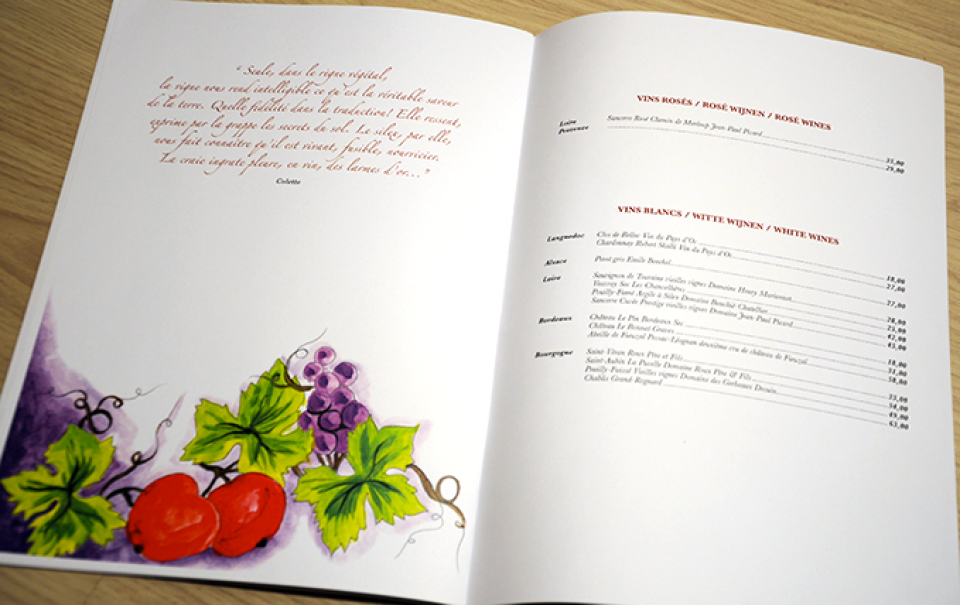 “ Seule, dans le règne végétal,
la vigne nous rend intelligible ce qu'est la véritable saveur
de la terre. Quelle fidélité dans la traduction! Elle ressent,
exprime par la grappe les secrets du sol. Le silex, par elle,
nous fait connaître qu'il est vivant, fusible, nourricier.
La craie ingrate pleure, en vin, des larmes d'or... ”
Colette
VINS ROSÉS / ROSÉ WIJNEN / ROSÉ WINES
Loire Sancerre Rosé Chemin de Marloup Jean-Paul Picard 35,00
Provence 29,00
VINS BLANCS / WITTE WIJNEN / WHITE WINES
Languedoc Clos de Vin du Pays d'Oc 18,00
Chardonnay Robert Skalli Vin du Pays d'Oc 27,00
Alsace Pinot gris Emile Boeckel 27,00
Loire Sauvignon de Touraine vieilles vignes Domaine Houry 28,00
Vouvray Sec Les Chancelières 25,00
Pouilly-Fumé Argile à Silex Domaine Chatellier 42,00
Sancerre Cuvée Prestige vieilles vignes Domaine Jean-Paul Picard 45,00
Bordeaux Château Le Pin Bordeaux Sec 18,00
Château Le Bonnat Graves 31,00
Abeille de Fieuzal Pessac-Léognan deuxième cru de château de Fieuzal 50,00
Bourgogne Saint-Véran Roux Père et Fils 35,00
Saint-Aubin La Pucelle Domaine Roux Père & Fils 54,00
Pouilly-Fuissé Vieilles vignes Domaine des 49,00
Chablis Grand Regnard 65,00